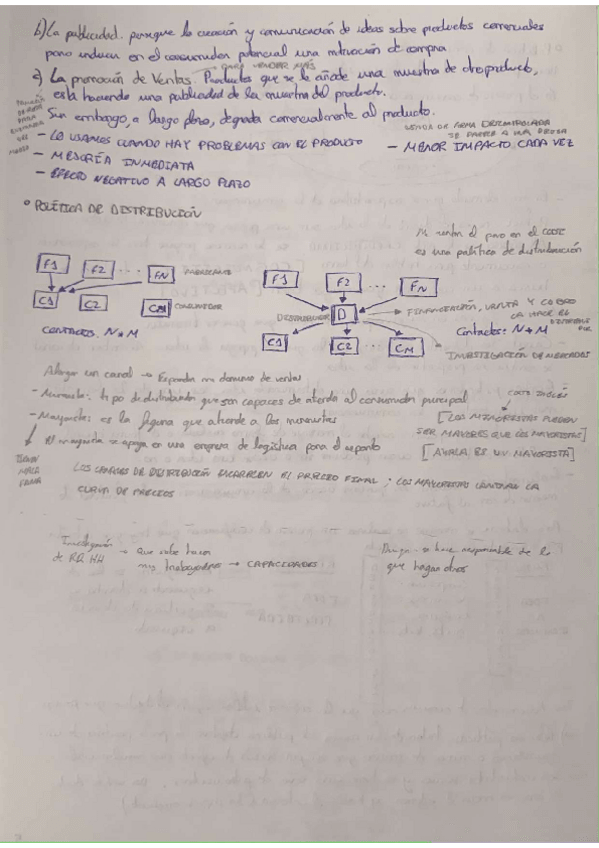 b) La publicidad. persigue la creación y comunicación de ideas sobre productos comerciales
para inducir en el consumidor potencial una motivación de compra
→ PARA VENDER MÁS
c) La promoción de Ventas. Productos que se le añade una muestra de otro producto,
está haciendo una publicidad de la muestra del producto.
Sin embargo, a largo plazo, degrada comercialmente al producto.
VENTA DE FORMA DESCONTROLADA
- LO USAMOS CUANDO HAY PROBLEMAS CON EL PRODUCTO
- MENOR IMPACTO CADA VEZ
- MEJORÍA INMEDIATA
- EFECTO NEGATIVO A LARGO PLAZO
° POLÍTICA DE DISTRIBUCIÓN
es una política de distribución
F1 F2 ... FN FABRICANTE
C1 C2 CM CONSUMIDOR
CONTACTOS. N * M
F1 F2 ... FN
DISTRIBUIDOR D → FINANCIACIÓN, VENTA Y COBRO
LO HACE EL
C1 C2 ... CM
Contactos: N + M
INVESTIGACIÓN DE MERCADOS
Alargar un canal → Expandir mi dominio de ventas
- Minorista: tipo de distribuidor que son capaces de atender al consumidor principal
- Mayorista: es la figura que atiende a los minoristas
CORTE INGLÉS
[LOS MINORISTAS PUEDEN
SER MAYORES QUE LOS MAYORISTAS]
El mayorista se apoya en una empresa de logística para el reparto
[AVALA ES UN MAYORISTA]
TIENEN
MALA
FAMA
LOS CANALES DE DISTRIBUCIÓN ENCARECEN EL PRECIO FINAL. LOS MAYORISTAS LA
DE PRECIOS
→ Que sabe hacer
de RR HH
mis trabajadores → CAPACIDADES
Dirigir → se hace responsable de lo
que hagan otros